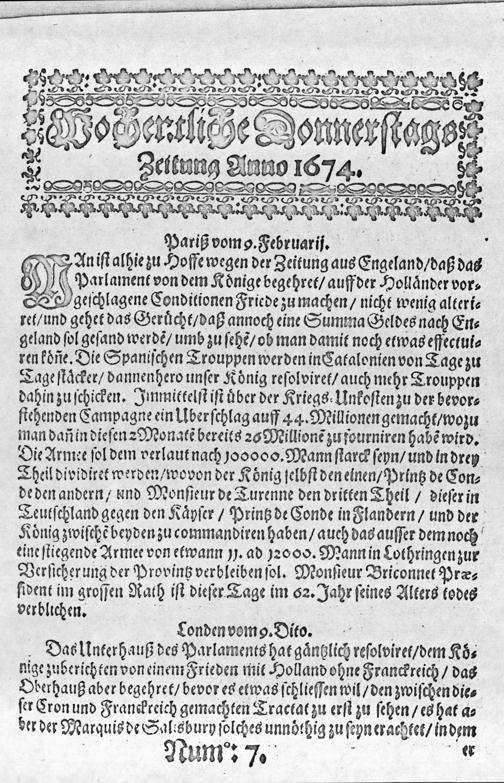 Wochentliche Donnerstags
Zeitung Anno 1674.
Pariß vom 9. Februarij.
MAn ist alhie zu Hoffe wegen der Zeitung aus Engeland/daß das
Parlament von dem Könige begehret/ auff der Holländer vor-
geschlagene Conditionen Friede zu machen/ nicht wenig alteri-
ret/und gehet das Gerücht/daß annoch eine Summa Geldes nach En-
geland sol gesand werdē/ umb zu sehē/ ob man damit noch etwas effectui-
ren köñe. Die Spanischen Trouppen werden in Catalonien von Tage zu
Tage stäcker/ dannenhero unser König resolviret/ auch mehr Trouppen
dahin zu schicken. Immittelst ist über der Kriegs-Unkosten zu der bevor-
stehenden Campagne ein Uberschlag auff 44. Millionen gemacht/wozu
man dañ in diesen 2 Monatē bereits 26 Millionē zu fourniren habē wird.
Die Armee sol dem verlaut nach 100000. Mann starck seyn/ und in drey
Theil dividiret werden/wovon der König selbst den einen/ Printz de Con-
de den andern/ und Monsieur de Turenne den dritten Theil / dieser in
Teutschland gegen den Käyser / Printz de Conde in Flandern / und der
König zwischē beyden zu commandiren haben/ auch das ausser dem noch
eine fliegende Armee von etwann 11. ad 12000. Mann in Lothringen zur
Versicherung der Provintz verbleiben sol. Monsieur Briconnet Præ-
sident im grossen Rath ist dieser Tage im 62. Jahr seines Alters todes
verblichen.
Londen vom 9. Dito.
Das Unterhauß des Parlaments hat gäntzlich resolviret/dem Kö-
nige zuberichten von einem Frieden mit Holland ohne Franckreich / das
Oberhauß aber begehret/ bevor es etwas schliessen wil / den zwischen die-
ser Cron und Franckreich gemachten Tractat zu erst zu sehen/ es hat a-
ber der Marquis de Salisbury solches unnöthig zu seyn erachtet/ in dem
Num°: 7. er